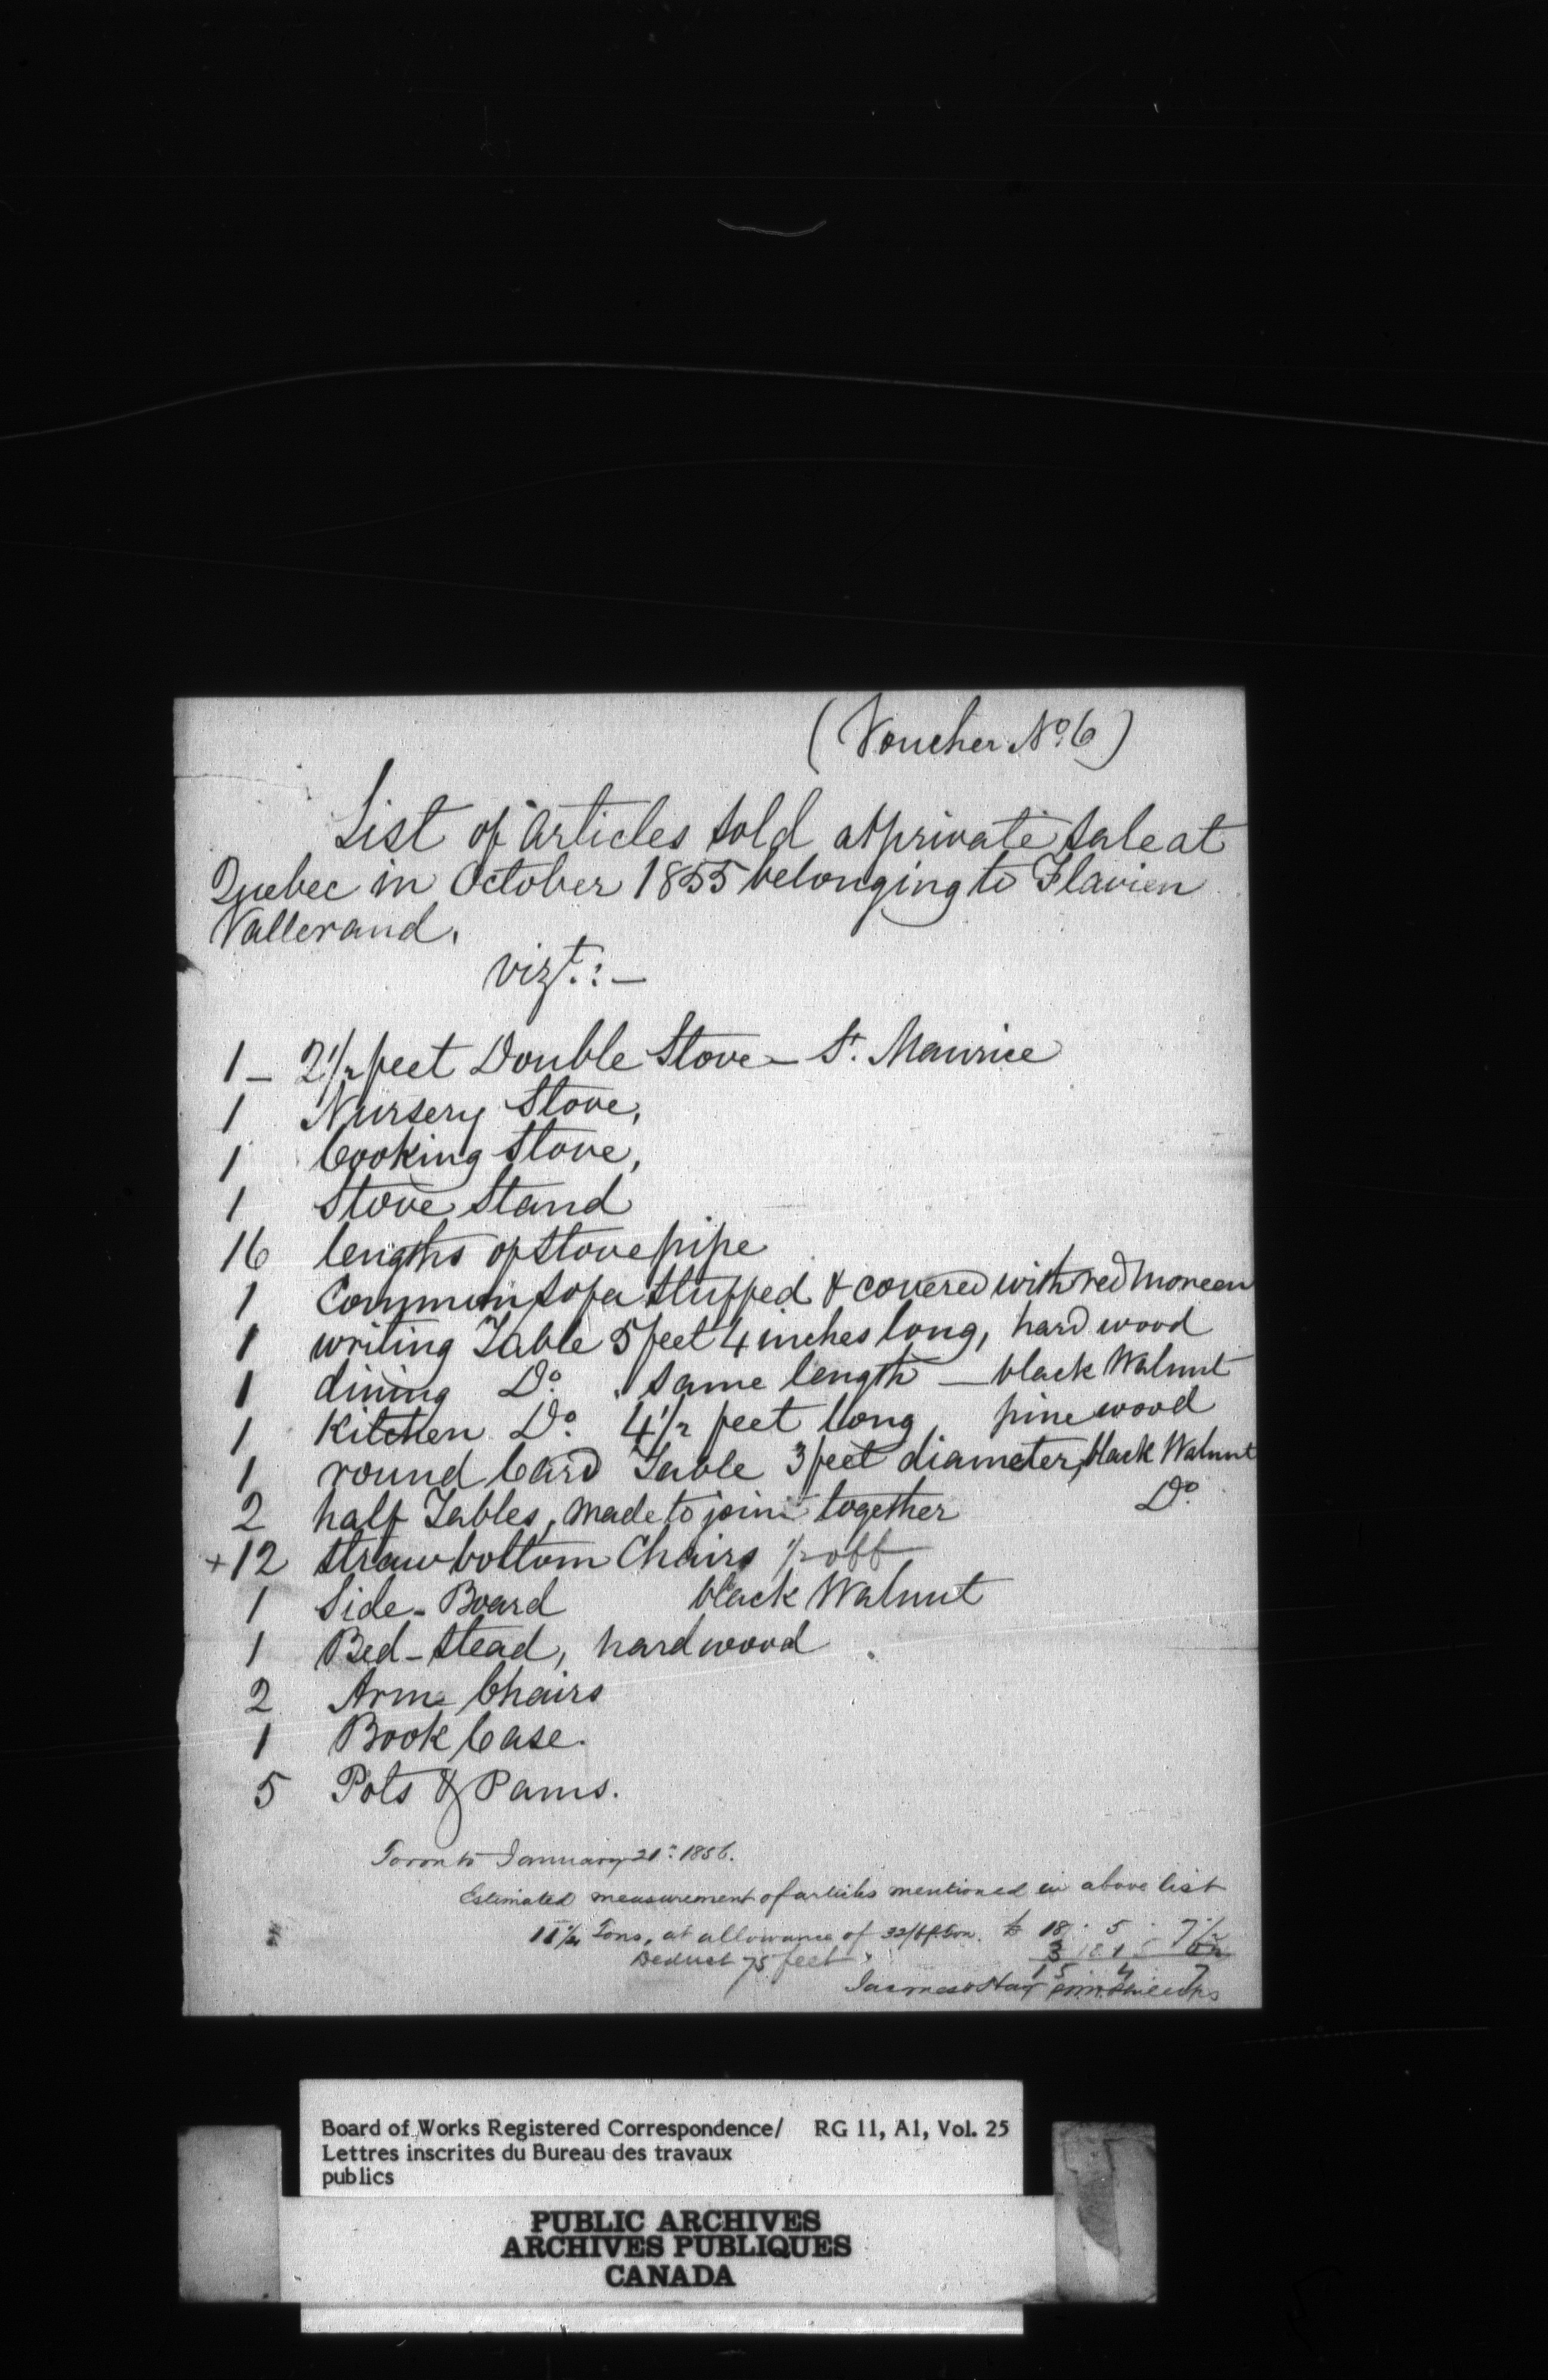 (Voucher No. 6)
List of articles sold at private sale at
Quebec in October 1855 belonging to Flavien
Vallerand.
vizt.:—
1 — 2 1/2 feet Double Stove — St. Maurice
1 Nursery Stove,
1 Cooking Stove,
1 Stove Stand
16 lengths of Stove pipe
1 Common Sofa Stuffed & covered with red moreen
1 writing Table 5 feet 4 inches long, hard wood
1 dining Do. same length — black Walnut
1 Kitchen Do. 4 1/2 feet long, pine wood
1 round Card Table 3 feet diameter, black Walnut
2 half Tables, made to join together Do.
+12 Straw bottom Chairs 1/2 off
1 Side-Board black Walnut
1 Bed-Stead, hard wood
2 Arm Chairs
1 Book Case.
5 Pots & Pans.
Toronto January 21st. 1856.
Estimated measurement of articles mentioned in above list
Tons, at allowance of 18 . 5 . 7 1/2
Deduct 75 feet
15 4 7
Board of Works Registered Correspondence/ RG 11, A1, Vol. 25
Lettres inscrites du Bureau des travaux
publics
PUBLIC ARCHIVES
ARCHIVES PUBLIQUES
CANADA